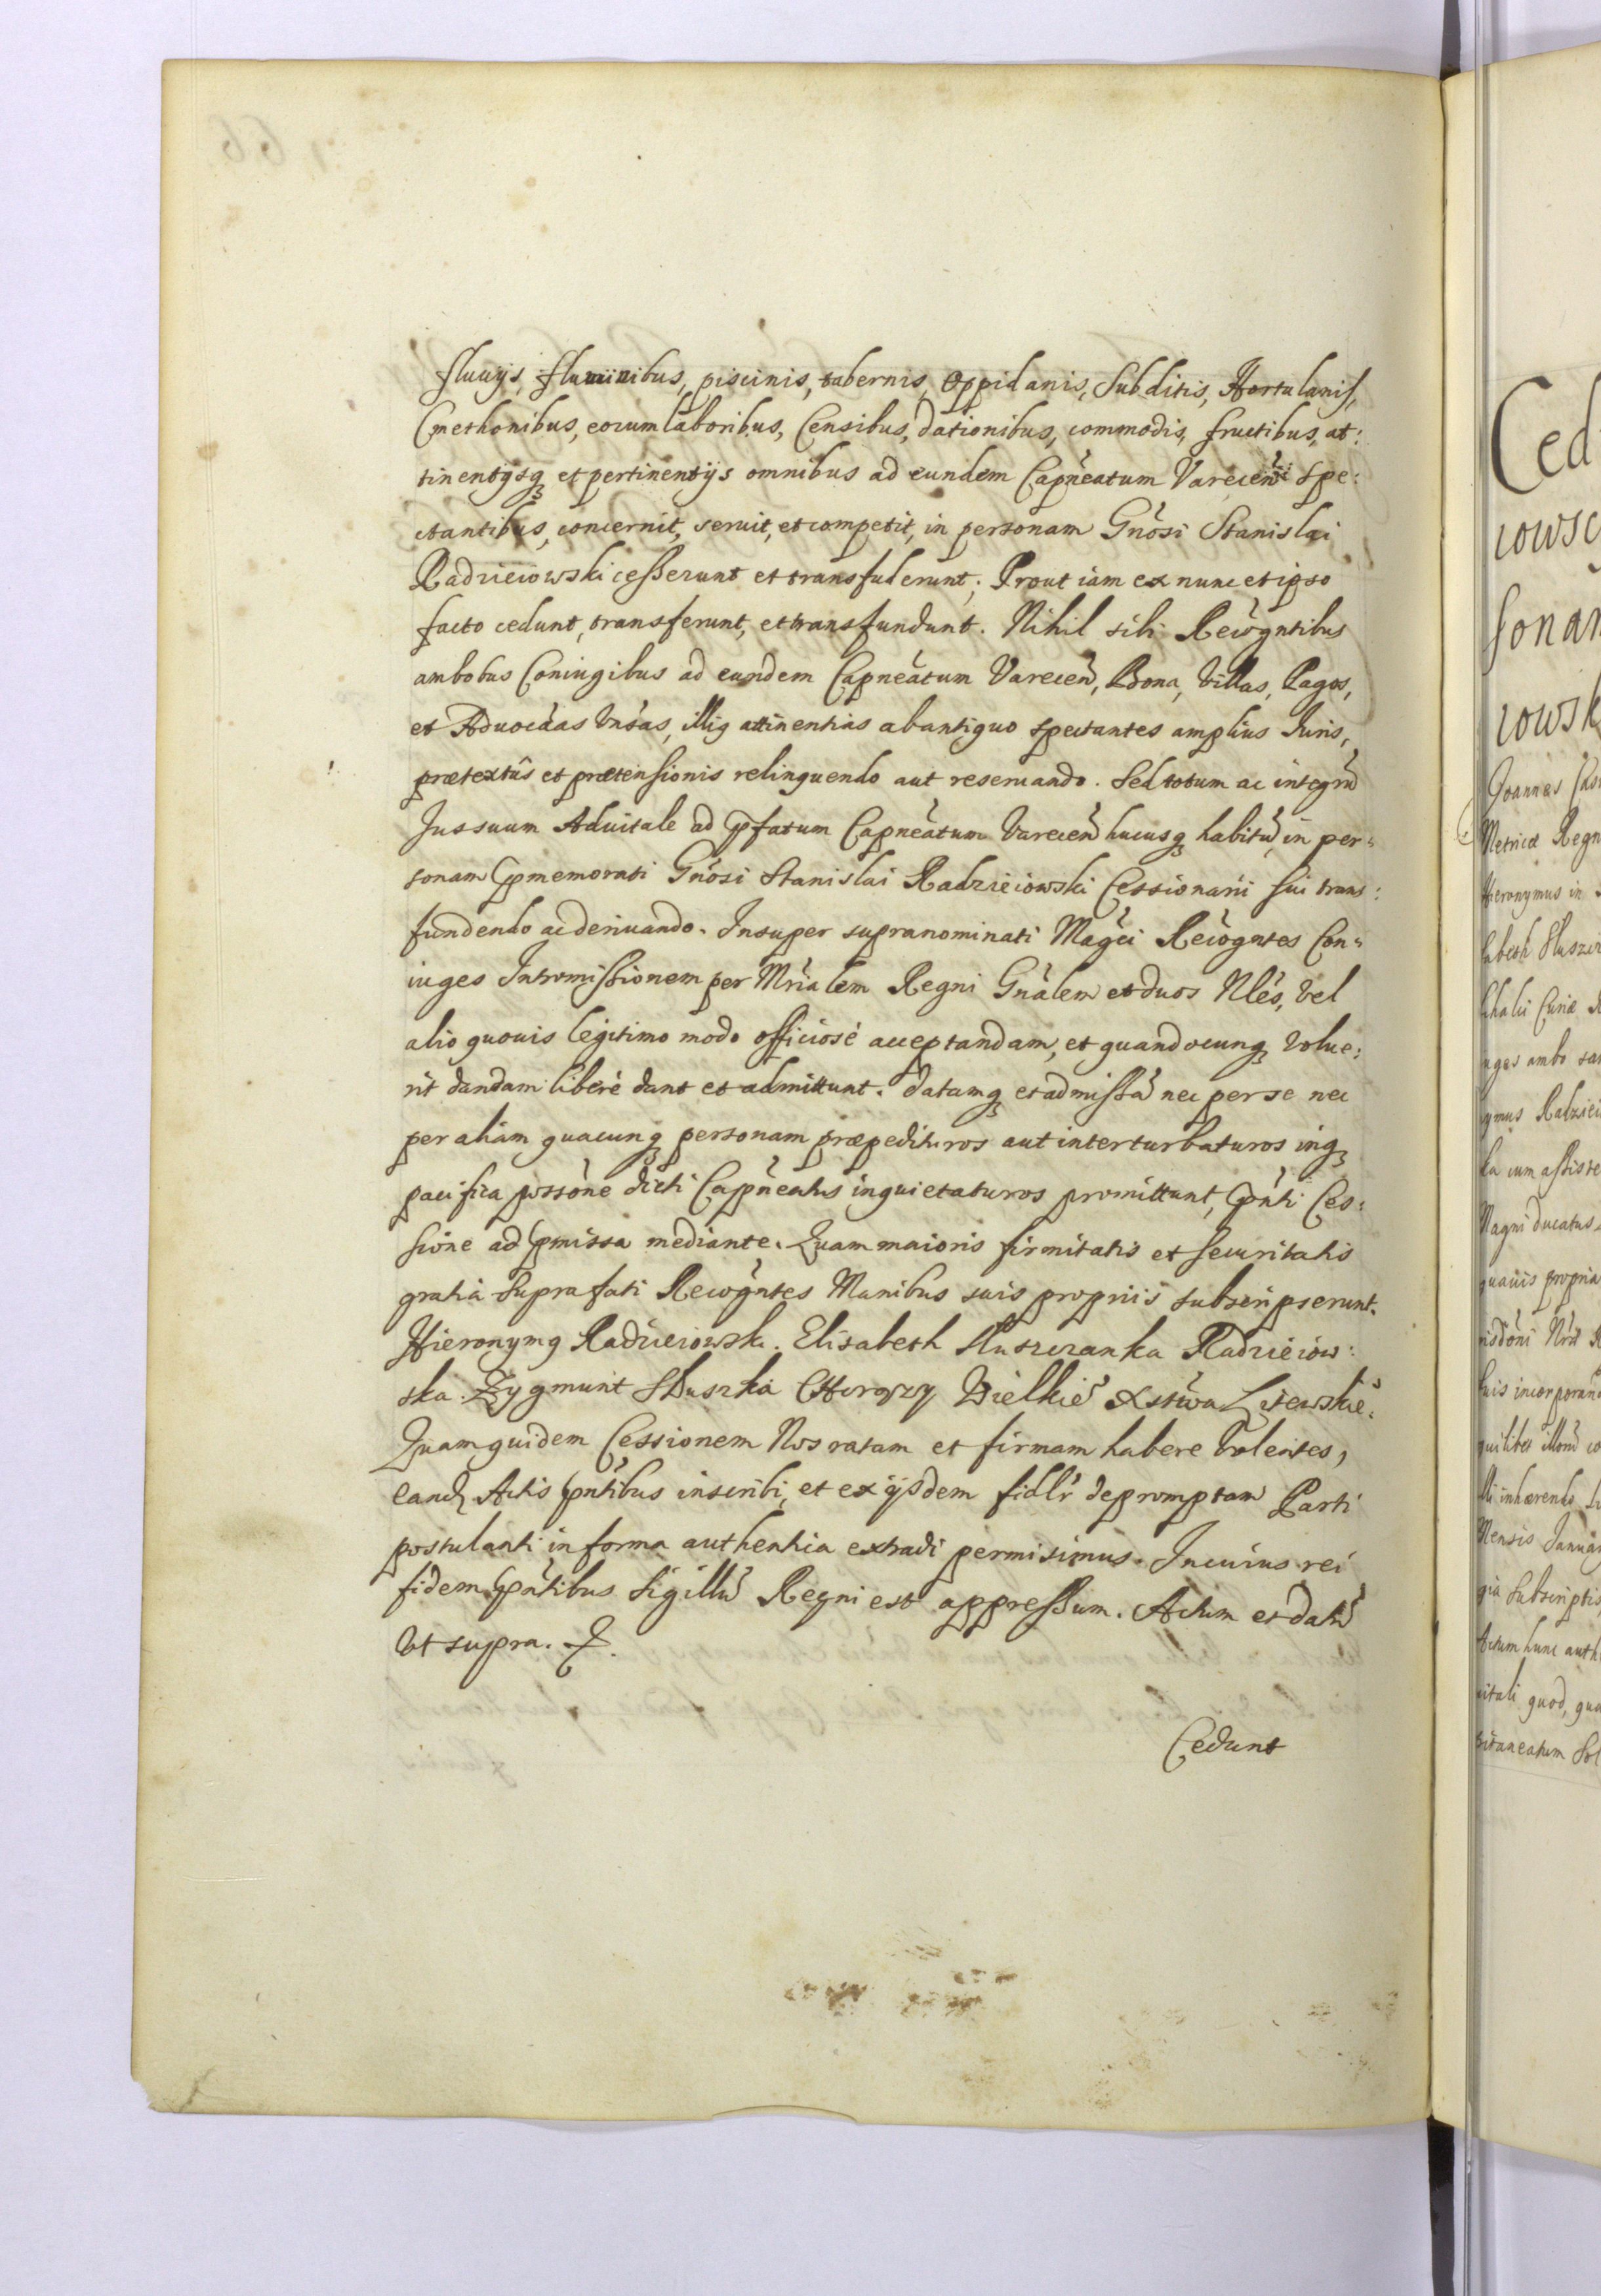 fluuijs, fluminibus, piscinis, tabernis, Oppidanis, Subditis, Hortulanis,
Cmethonibus, eorum laboribus, Censibus, dationibus, commodis, fructibus, at:
tinentijsq3 et pertinentijs omnibus ad eundem Capneatum Varecen spe:
ctantibus, concernit, seruit, et competit, in personam Gnosi Stanislai
Radzieiowski cesserunt et transfuderunt; Prout iam ex nunc et ipso
facto cedunt, transferunt, et transfundunt. Nihil sibi Recogntibus
ambobus Coniugibus ad eundem Capneatum Varecen, Bona, Villas, Pagos,
et Aduocaas Vnsas, illiq attinentias ab antiquo spectantes amplius Juris,
prætextûs et prætensionis relinquendo aut reseruando. Sed totum ac integru
Jus suum Aduitale ad pfatum Capneatum Varecen hucusq3 habitu, in per=
sonam pmemorati Gnosi Stanislai Radzieiowski Cessionarii sui trans:
fundendo ac deriuando. Insuper supranominati Magci Recogntes Con=
iuges Intromissionem per Mrialem Regni Gnalem et duos Nles, vel
alio quouis legitimo modo officiosé acceptandam, et quandocunq3 volue:
rit dandam liberè dant et admittunt. Datamq3 et admissa nec per se nec
per aliam quacunq3 personam præpedituros aut interturbaturos inq3
pacifica possone dicti Capneatus inquietaturos promittunt, pnti Ces:
sione ad pmissa mediante. Quam maioris firmitatis et securitatis
gratia Suprafati Recogntes Manibus suis propriis subscripserunt.
Hieronymq Radzieiowski. Elisabeth Sluszczanka Radzieiow:
ska. Zygmunt Słuszka Chorązy Wielkie Xstwa Litewskie:
Quam quidem Cessionem Nos ratam et firmam habere Volentes,
eand Actis pntibus inscribi, et ex ijsdem fidlr depromptam Parti
postulanti in forma authentica extradi permisimus. In cuius rei
fidem pntibus Sigillu Regni est appressum. Actum et datu
Vt supra.
Cedunt
Ced
iowsc
sonam
iowsk
Joannes Cas
Metricæ Regn
Hieronymus in
sabeth Sluszcz
Magni ducatus
Mensis Januar